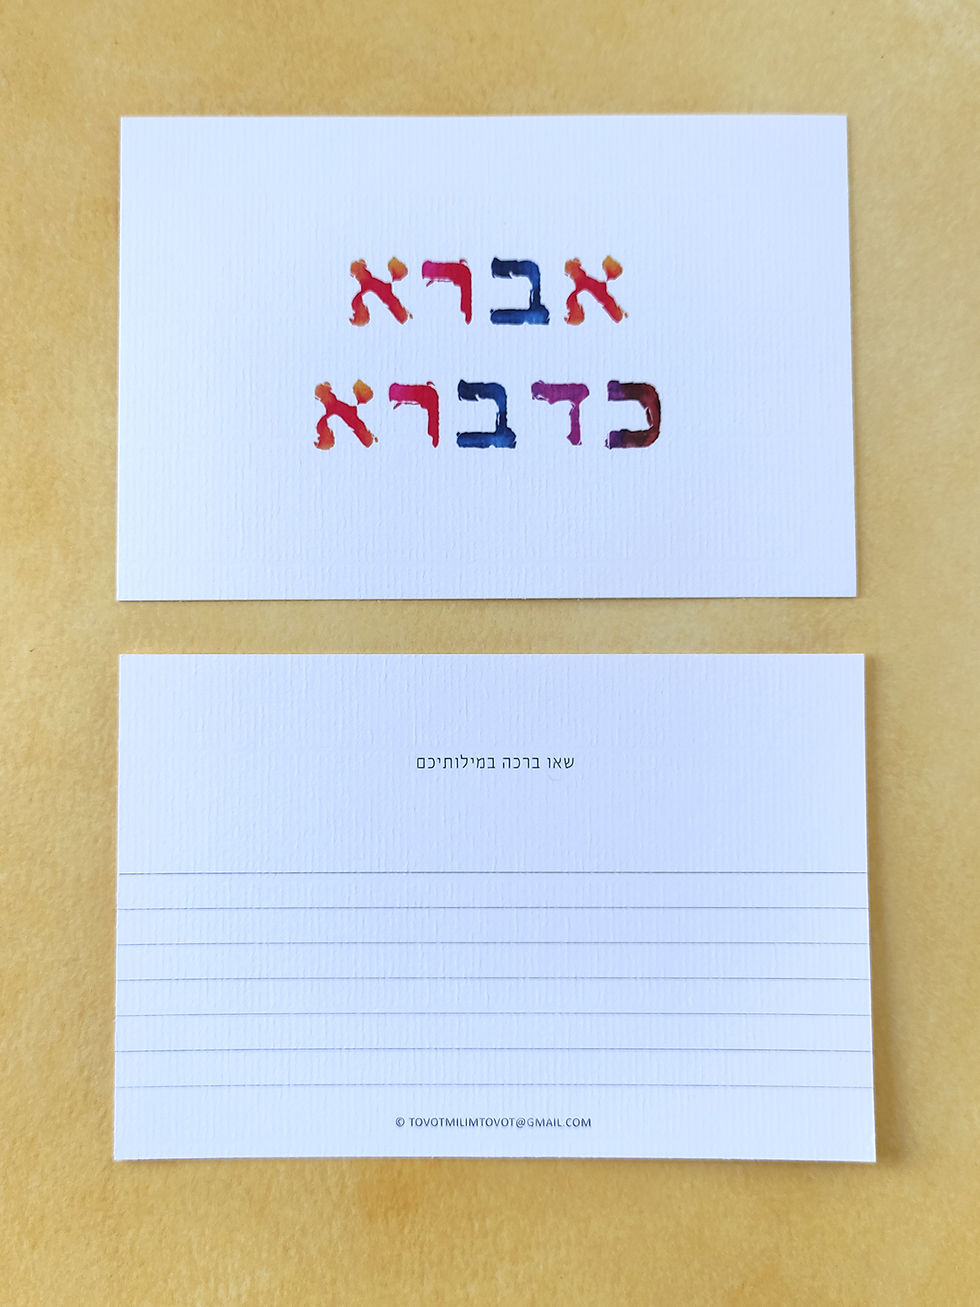 אברא
כדברא
שאו ברכה במילותיכם
© TOVOTMILIMTOVOT@GMAIL.COM